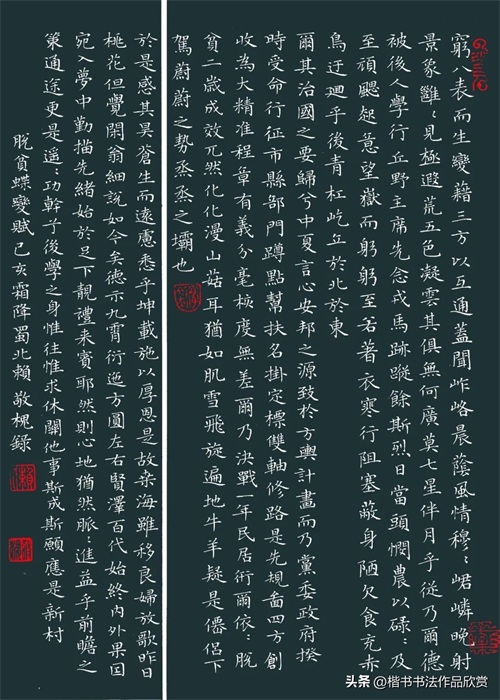 窮人表而生變藉三方以互通蓋聞岞峈晨蔭風情穆:峮嶙晚射
景象雖:見極遐荒五色凝雲其俱無何廣莫七星伴月乎從乃爾德
被後人學行丘野主席先念戎馬跡蹤餘斯烈日當頭憫農以碌:及
至頑颸起意望嶽而躬躬至若著衣寒行阻塞蔽身陋欠食充赤
烏迂廻乎後青杠屹立於北於東
爾其治國之要歸兮中夏言心安邦之源致於方輿計畫而乃黨委政府揆
時受命行征市縣部門蹲點幫扶名掛定標雙軸修路是先規畫四方創
收為大精准程章有義分毫極度無差爾乃決戰一年民居術爾依:脫
貧二歲成效兀然化化漫山菇耳猶如肌雪飛旋遍地牛羊疑是僊侶下
駕蔚蔚之勢烝烝之壩也
於是感其昊蒼生而遠慮悉乎坤載施以厚恩是故桒海雖移良婦放歌昨日
桃花但覺閑翁細說如今矣德示九霄衍迤方圓左右賢澤百代始終內外果因
宛入夢中勤描先緒始於足下靚禮來賓耶然則心地猶然脈:進益乎前瞻之
策通途更是遥:功幹子後學之身惟往惟求休關他事斯成斯願應是新村
脫貧蝶變賦己亥霜降蜀北賴敬槐錄
头条 @楷书书法作品欣赏